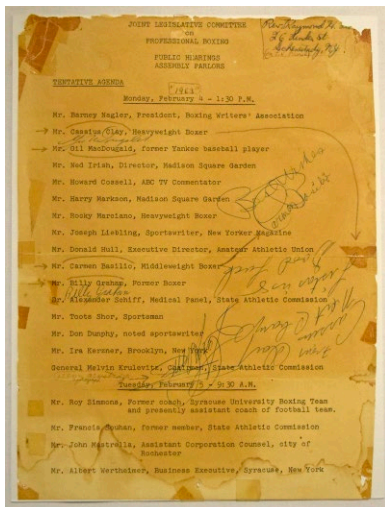 JOINT LEGISLATIVE COMMITTEE
on
PROFESSIONAL BOXING
PUBLIC HEARINGS
ASSEMBLY PARLORS
TENTATIVE AGENDA
Monday, February 4 - 1:30 P.M.
Mr. Barney Nagler, President, Boxing Writers' Association
Mr. Cassius Clay, Heavyweight Boxer
Mr. Gil MacDougald, former Yankee baseball player
Mr. Ned Irish, Director, Madison Square Garden
Mr. Howard Cossell, ABC TV Commentator
Mr. Harry Markson, Madison Square Garden
Mr. Rocky Marciano, Heavyweight Boxer
Mr. Joseph Liebling, Sportswriter, New Yorker Magazine
Mr. Donald Hull, Executive Director, Amateur Athletic Union
Mr. Carmen Basilio, Middleweight Boxer
Mr. Billy Graham, Former Boxer
Dr. Alexander Schiff, Medical Panel, State Athletic Commission
Mr. Toots Shor, Sportsman
Mr. Don Dunphy, noted sportswriter
Mr. Ira Kersner, Brooklyn, New York
General Melvin Krulewitz, Chairman, State Athletic Commission
Tuesday, February 5 - 9:30 A.M.
Mr. Roy Simmons, Former coach, Syracuse University Boxing Team
and presently assistant coach of football team.
Mr. Francis Souhan, former member, State Athletic Commission
Mr. John Mastrella, Assistant Corporation Counsel, city of
Rochester
Mr. Albert Wertheimer, Business Executive, Syracuse, New York